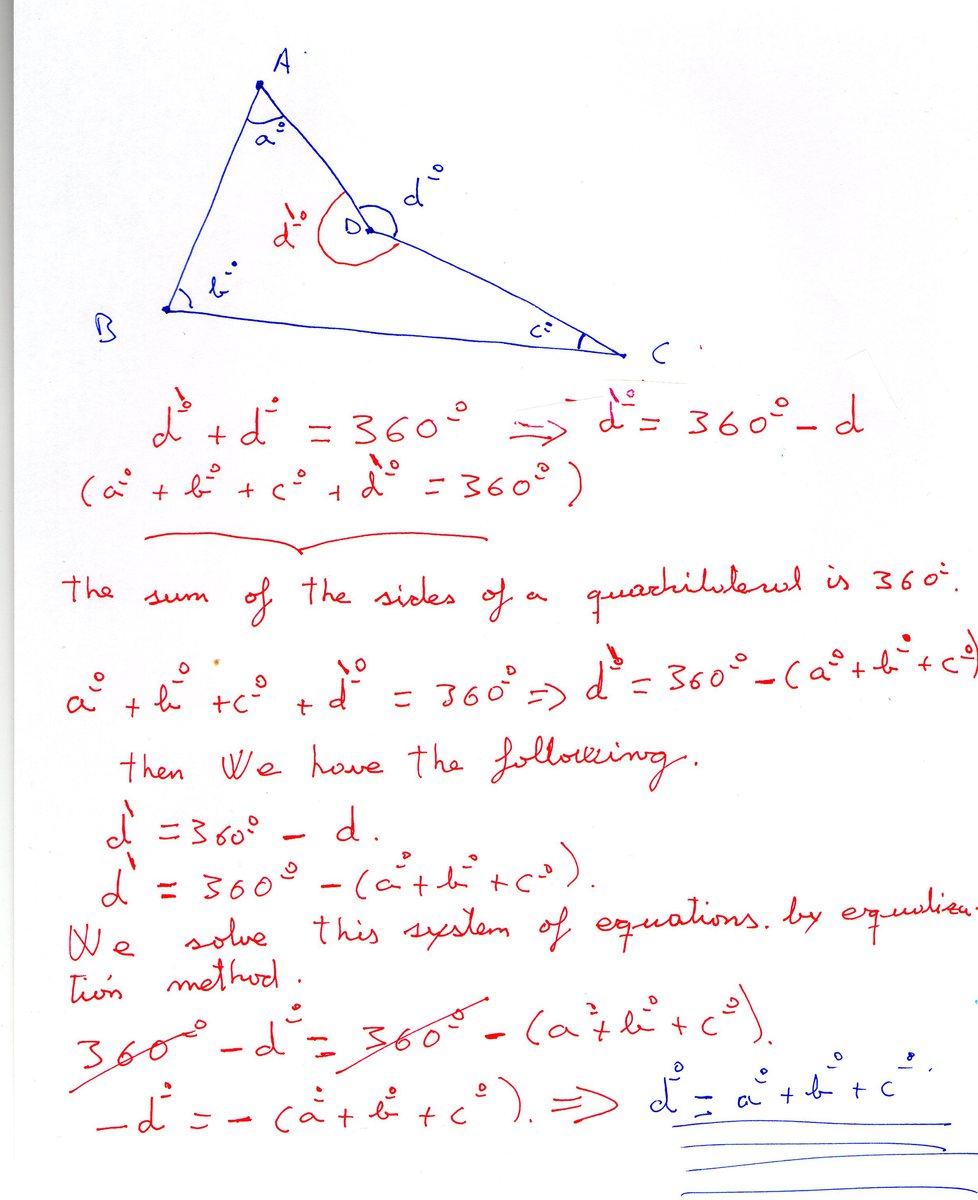 A
a°
d°
d'°
D
b°
B
c°
C
d'° + d° = 360° ⇒ d'° = 360° - d
(a° + b° + c° + d'° = 360°)
the sum of the sides of a quadrilateral is 360°.
a° + b° + c° + d'° = 360° ⇒ d' = 360° - (a° + b° + c°)
then We have the following.
d' = 360° - d.
d' = 360° - (a° + b° + c°).
We solve this system of equations. by equaliza-
tión method.
360° - d° = 360° - (a° + b° + c°).
-d° = - (a° + b° + c°). ⇒ d° = a° + b° + c°.